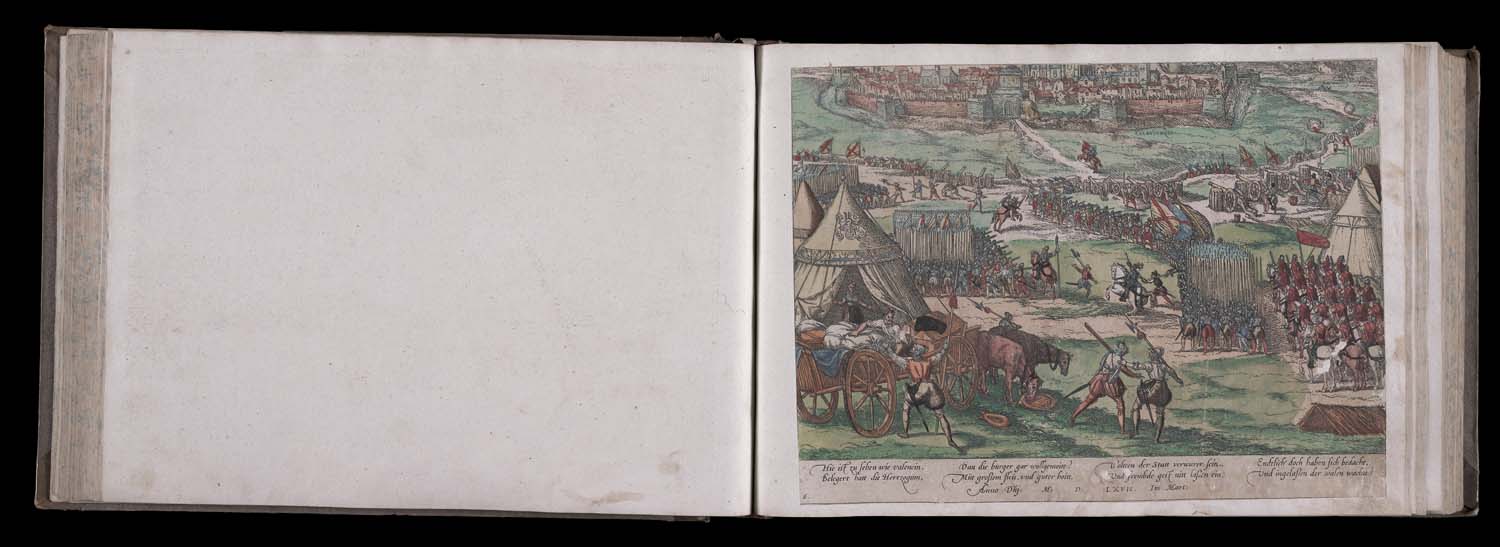 VALENCENNE
Hie ist zu sehen wie valencin,
Belegert hatt die Hertzogin,
Dan die burger gar willgemeint
Mitt großem fleis, vnd guter hoin,
Wolten der Statt verwarer sein,
Vnd frembde geist nitt laßen ein,
Endtlich doch haben sich bedacht,
Vnd ingelaßen der walen macht
Anno Dñj. M. D. LXVII. Im Mart.
6.